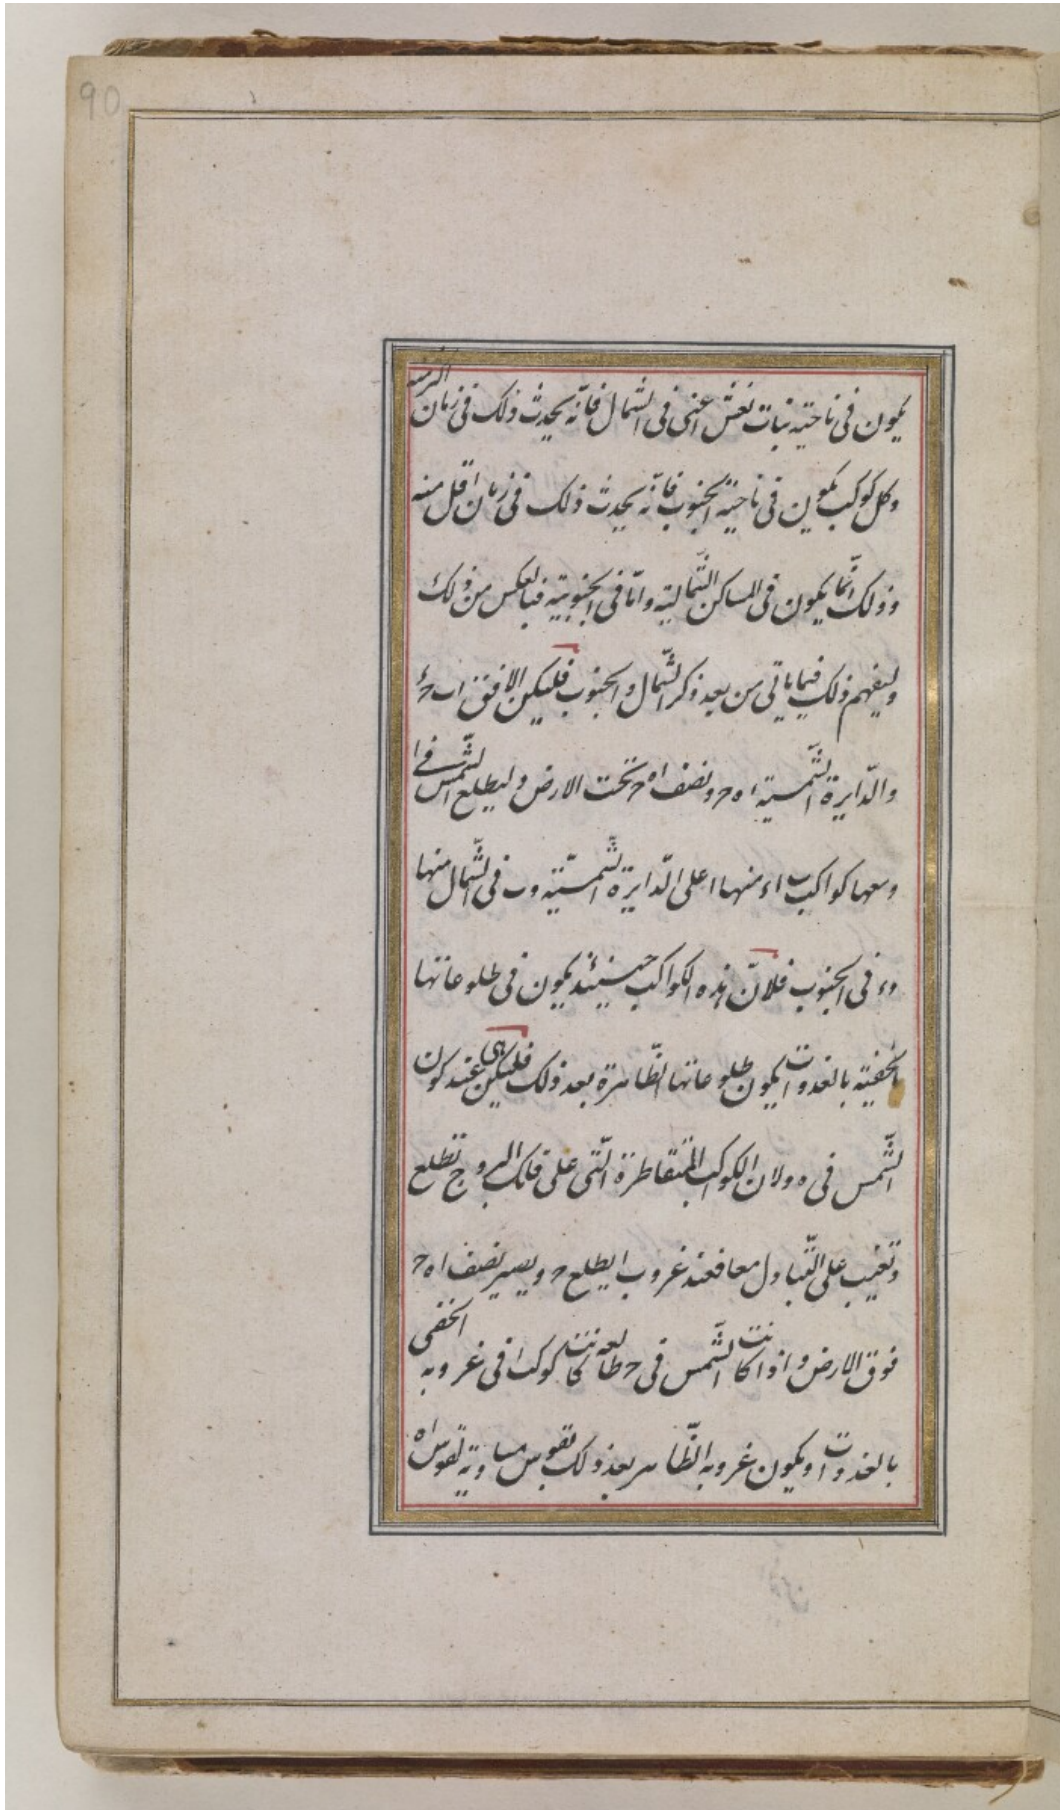 90
يكون فى ناحية بنات نعش اعنى فى الشّمال فانّه يحدث ذلك فى زمان اكثر منه
وكل كوكب يكون فى ناحية الجنوب فانّه يحدث ذلك فى زمان اقل منه
وذلك انّما يكون فى المساكن الشّمالية وامّا فى الجنوبية فبالعكس من ذلك
وليفهم ذلك فيما ياتى من بعد ذكر الشّمال والجنوب فليكن الافق ا ب ح ء
والدّايرة الشّمسية ا ه ح ونصف ا ه ح تحت الارض وليطلع الشّمس فى ا
ومعها كواكب ا ب ء منها ا على الدّايرة الشّمسيّة و ب فى الشّمال منها
و ء فى الجنوب فلانّ هذه الكواكب حينئذ يكون فى طلوعاتها
الخفية بالغدوات يكون طلوعاتها الظّاهرة بعد ذلك فليكن هى عند كون
الشّمس فى ه ولان الكواكب المتقاطرة الّتى على فلك البروج تطلع
وتغيب على التّبادل معا فعند غروب ا يطلع ح ويصير نصف ا ه ح
فوق الارض واذا كانت الشّمس فى ح طالعة كانت كوكب ا فى غروبه الخفى
بالغدوات ويكون غروبه الظّاهر بعد ذلك بقوس مساوية لقوس ا ه